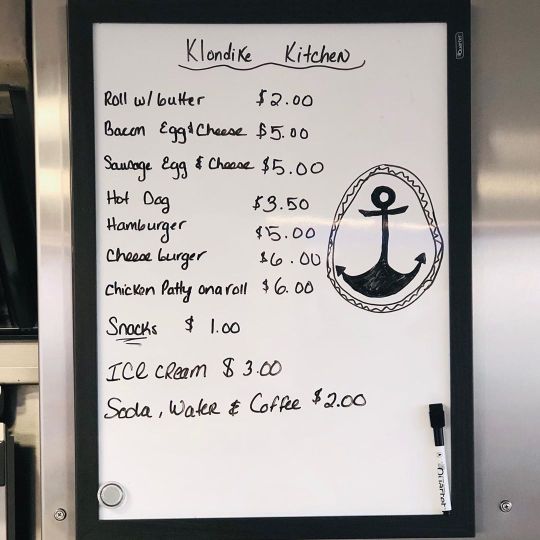 Klondike Kitchen
Quartet
Roll w/ butter $2.00
Bacon Egg & Cheese $5.00
Sausage Egg & Cheese $5.00
Hot Dog $3.50
Hamburger $5.00
Cheese burger $6.00
Chicken Patty on a roll $6.00
Snacks $1.00
ICE CREAM $3.00
Soda, Water & Coffee $2.00
Quartet